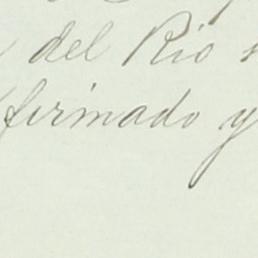 del Rio
firmado y